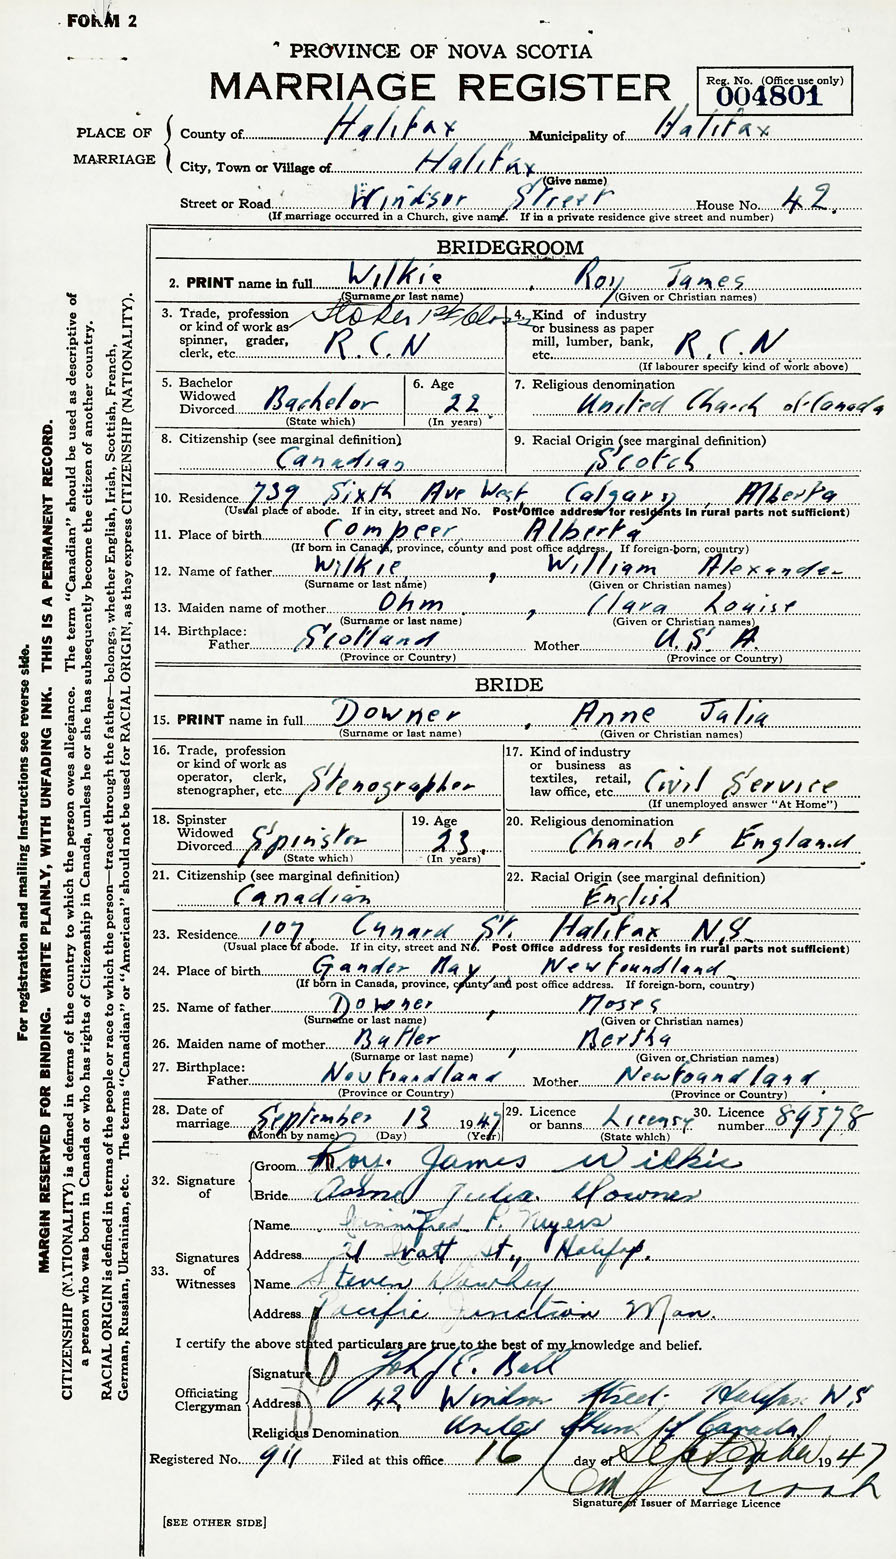 FORM 2
PROVINCE OF NOVA SCOTIA
MARRIAGE REGISTER
Reg. No. (Office use only)
004801
PLACE OF MARRIAGE
County of Halifax Municipality of Halifax
City, Town or Village of Halifax
(Give name)
Street or Road Windsor Street House No. 42.
(If marriage occurred in a Church, give name. If in a private residence give street and number)
BRIDEGROOM
2. PRINT name in full Wilkie , Roy James
(Surname or last name) (Given or Christian names)
3. Trade, profession or kind of work as spinner, grader, clerk, etc. Stoker 1st Class R.C.N
4. Kind of industry or business as paper mill, lumber, bank, etc. R.C.N
(If labourer specify kind of work above)
5. Bachelor Widowed Divorced Bachelor
(State which)
6. Age 22
(In years)
7. Religious denomination United Church of Canada
8. Citizenship (see marginal definition) Canadian
9. Racial Origin (see marginal definition) Scotch
10. Residence 739 Sixth Ave West, Calgary, Alberta
(Usual place of abode. If in city, street and No. Post Office address for residents in rural parts not sufficient)
11. Place of birth Compeer, Alberta
(If born in Canada, province, county and post office address. If foreign-born, country)
12. Name of father Wilkie , William Alexander
(Surname or last name) (Given or Christian names)
13. Maiden name of mother Ohm , Clara Louise
(Surname or last name) (Given or Christian names)
14. Birthplace: Father Scotland Mother U.S.A.
(Province or Country) (Province or Country)
BRIDE
15. PRINT name in full Downer , Anne Julia
(Surname or last name) (Given or Christian names)
16. Trade, profession or kind of work as operator, clerk, stenographer, etc. Stenographer
17. Kind of industry or business as textiles, retail, law office, etc. Civil Service
(If unemployed answer "At Home")
18. Spinster Widowed Divorced Spinster
(State which)
19. Age 23.
(In years)
20. Religious denomination Church of England.
21. Citizenship (see marginal definition) Canadian
22. Racial Origin (see marginal definition) English
23. Residence 107, Cunard St. Halifax N.S.
(Usual place of abode. If in city, street and No. Post Office address for residents in rural parts not sufficient)
24. Place of birth Gander Bay, Newfoundland
(If born in Canada, province, county and post office address. If foreign-born, country)
25. Name of father Downer , Moses
(Surname or last name) (Given or Christian names)
26. Maiden name of mother Butler , Bertha
(Surname or last name) (Given or Christian names)
27. Birthplace: Father Newfoundland Mother Newfoundland
(Province or Country) (Province or Country)
28. Date of marriage September 13 1947
(Month by name) (Day) (Year)
29. Licence or banns License
(State which)
30. Licence number 89378
32. Signature of
Groom Roy James Wilkie
Bride Anne Julia Downer
33. Signatures of Witnesses
Name Winnifred P. Myers
Address 21 St., Halifax.
Name Steven
Address Pacific Junction Man.
I certify the above stated particulars are true to the best of my knowledge and belief.
Officiating Clergyman
Signature John E. Bell
Address 42 Windsor Street Halifax N.S
Religious Denomination United Church of Canada
Registered No. 911 Filed at this office 16 day of September 1947
Signature of Issuer of Marriage Licence
[SEE OTHER SIDE]
For registration and mailing instructions see reverse side.
MARGIN RESERVED FOR BINDING. WRITE PLAINLY, WITH UNFADING INK. THIS IS A PERMANENT RECORD.
CITIZENSHIP (NATIONALITY) is defined in terms of the country to which the person owes allegiance. The term "Canadian" should be used as descriptive of
a person who was born in Canada or who has rights of Citizenship in Canada, unless he or she has subsequently become the citizen of another country.
RACIAL ORIGIN is defined in terms of the people or race to which the person—traced through the father—belongs, whether English, Irish, Scottish, French,
German, Russian, Ukrainian, etc. The terms "Canadian" or "American" should not be used for RACIAL ORIGIN, as they express CITIZENSHIP (NATIONALITY).